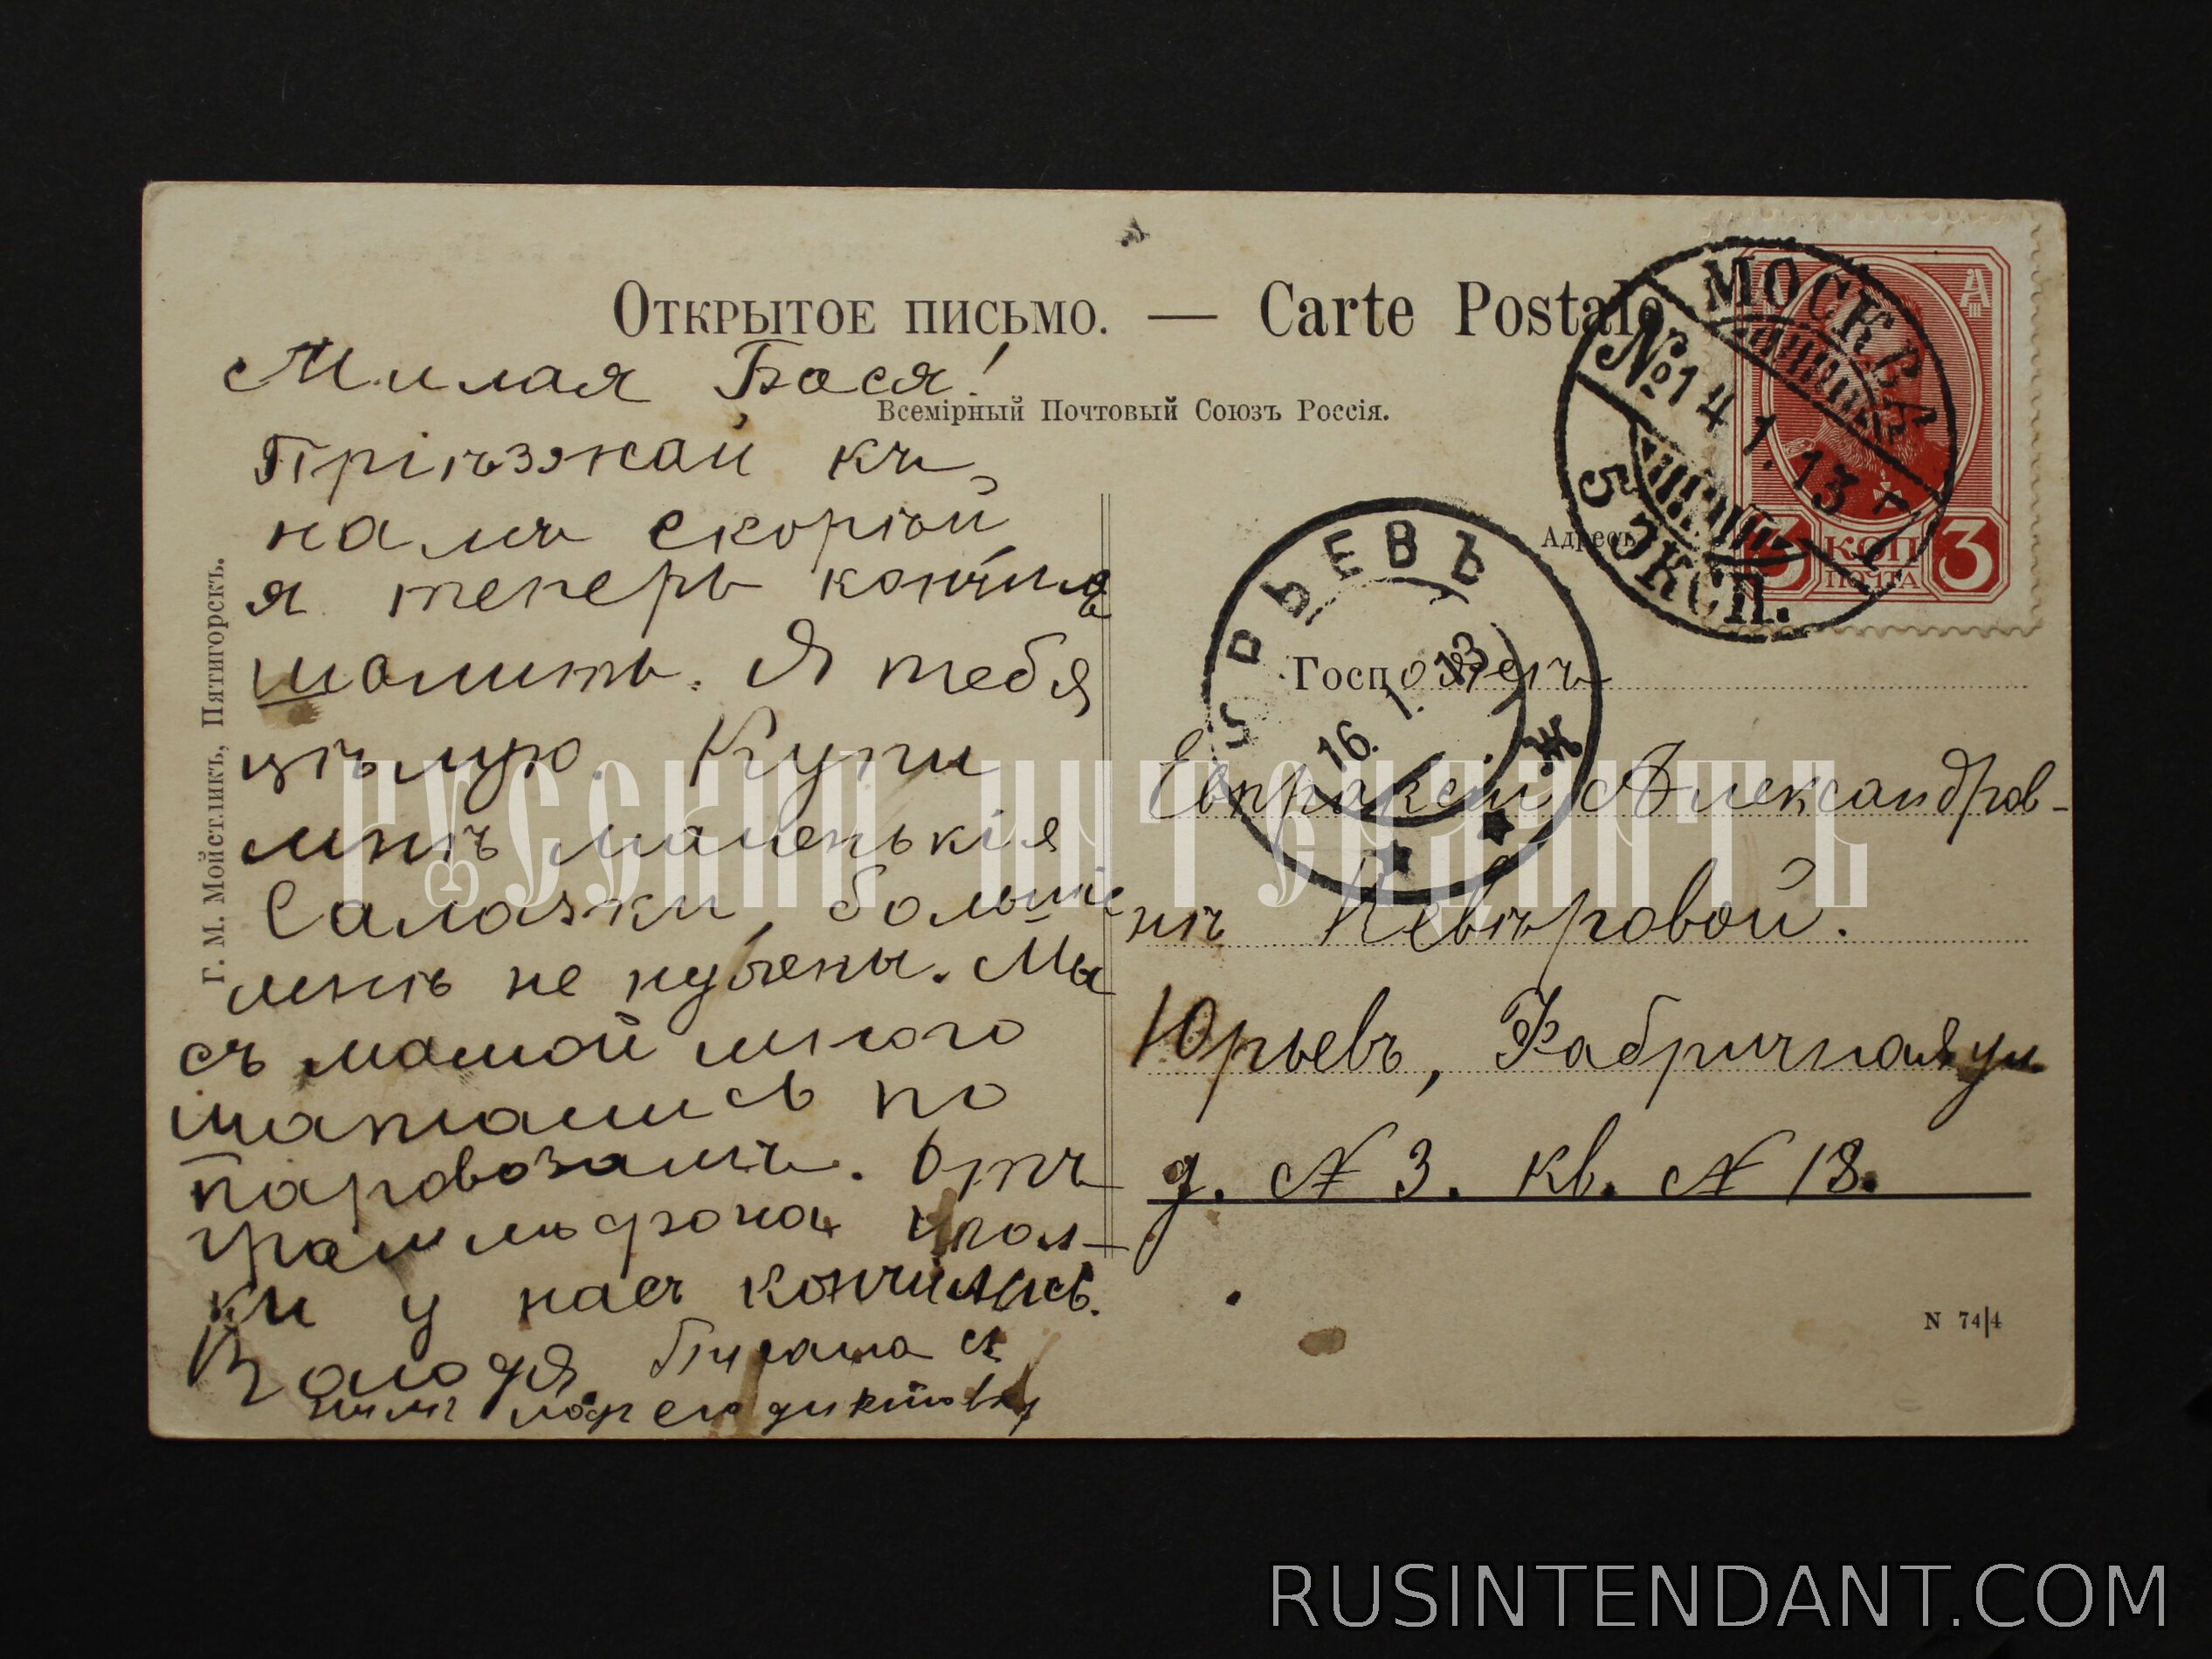 Открытое письмо. — Carte Postale
Всемірный Почтовый Союзъ Россія.
Милая Бася!
Пріѣзжай къ
намъ скорѣй
я теперь кончилъ
шалить. Я тебя
цѣлую. Купи
мнѣ маленькія
Салазки, больше
мнѣ не нужены. Мы
съ мамой много
шатались по
паровозамъ. Отъ
граммьфона иголки
ки у насъ кончились.
Валодя. Писала съ
диктовку
Г. М. Мойстликъ, Пятигорскъ.
МОСКВА
№1 4 1.13 г
5 ЭКСП.
КОП
ПОЧТА
3
Адресъ
ЮРЬЕВЪ
16.1.13
Ж
Госпожѣ
Евпраксіи Александров-
нѣ Невѣровой.
Юрьевъ, Фабричная ул.
д. N 3. кв. N 18.
N 74|4
РУССКІЙ ИНТЕНДАНТЪ
RUSINTENDANT.COM